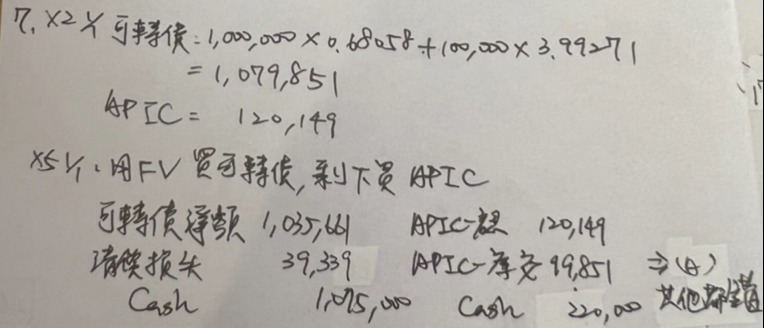 7. X2 1/1 可轉債：1,000,000 × 0.68058 + 100,000 × 3.99271
= 1,079,851
APIC = 120,149
X5 1/1、用FV 買可轉債, 剩下買 APIC
可轉債淨額 1,035,661 APIC-認 120,149
清償損失 39,339 APIC-庫交 99,851 ⇒(A)
Cash 1,075,000 Cash 220,000 其他都